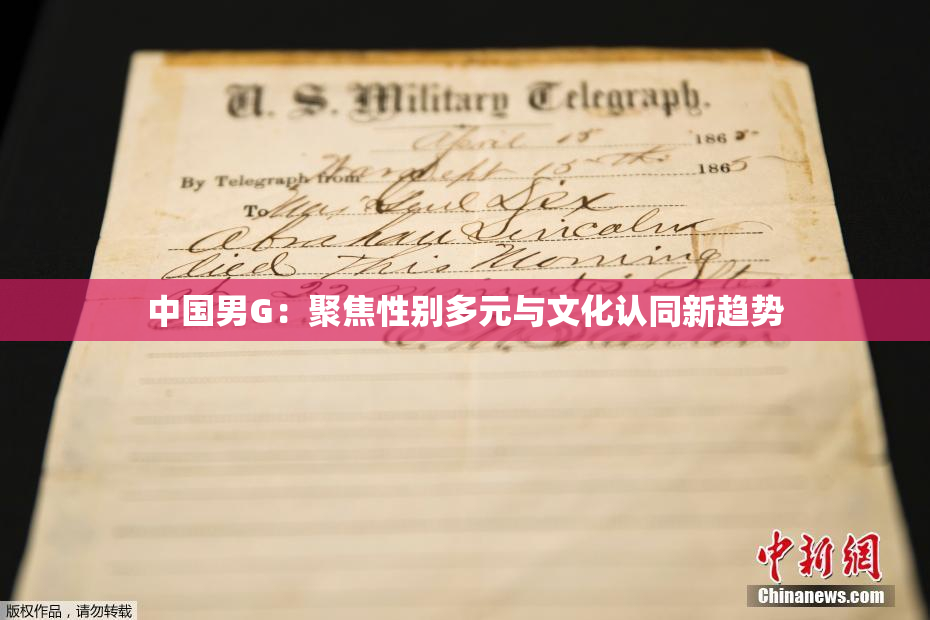 U. S. Military Telegraph.
April 15 1865
By Telegraph from War Dept 15th 1865
To Maj Genl Dix
Abraham Lincoln
died This Morning
at 22 minutes after
中国男G：聚焦性别多元与文化认同新趋势
E. M. Stanton
中新网
Chinanews.com
版权作品，请勿转载